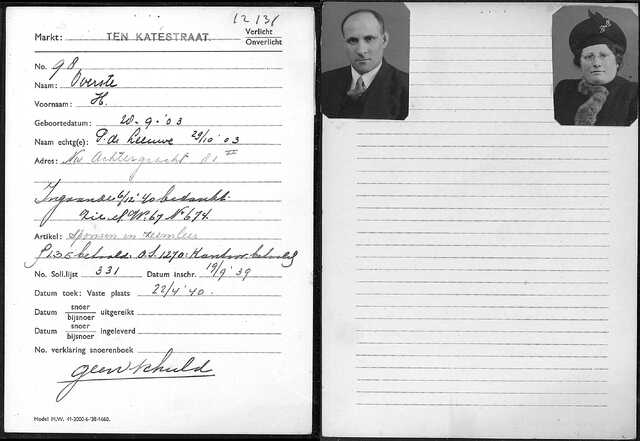 12 131
Markt: TEN KATESTRAAT. Verlicht
Onverlicht
No. 98
Naam: Overste
Voornaam: H.
Geboortedatum: 20-9-'03
Naam echtg(e): P. de Leeuwe 29/10 '03
Adres: Nwe Achtergracht 81 II
Ingaande 6/12 '40 bedankt.
Zie M.W. 67 No 674.
Artikel: Sponsen en zeemleer
betaald. O.S. 1270. Kantoor betaald
No. Soll.lijst 331 Datum inschr. 19/9 '39
Datum toek: Vaste plaats 22/4 '40.
Datum snoer
bijsnoer uitgereikt
Datum snoer
bijsnoer ingeleverd
No. verklaring snoerenboek
geen schuld
Model M.W. 41-2000-6-'38-1660.